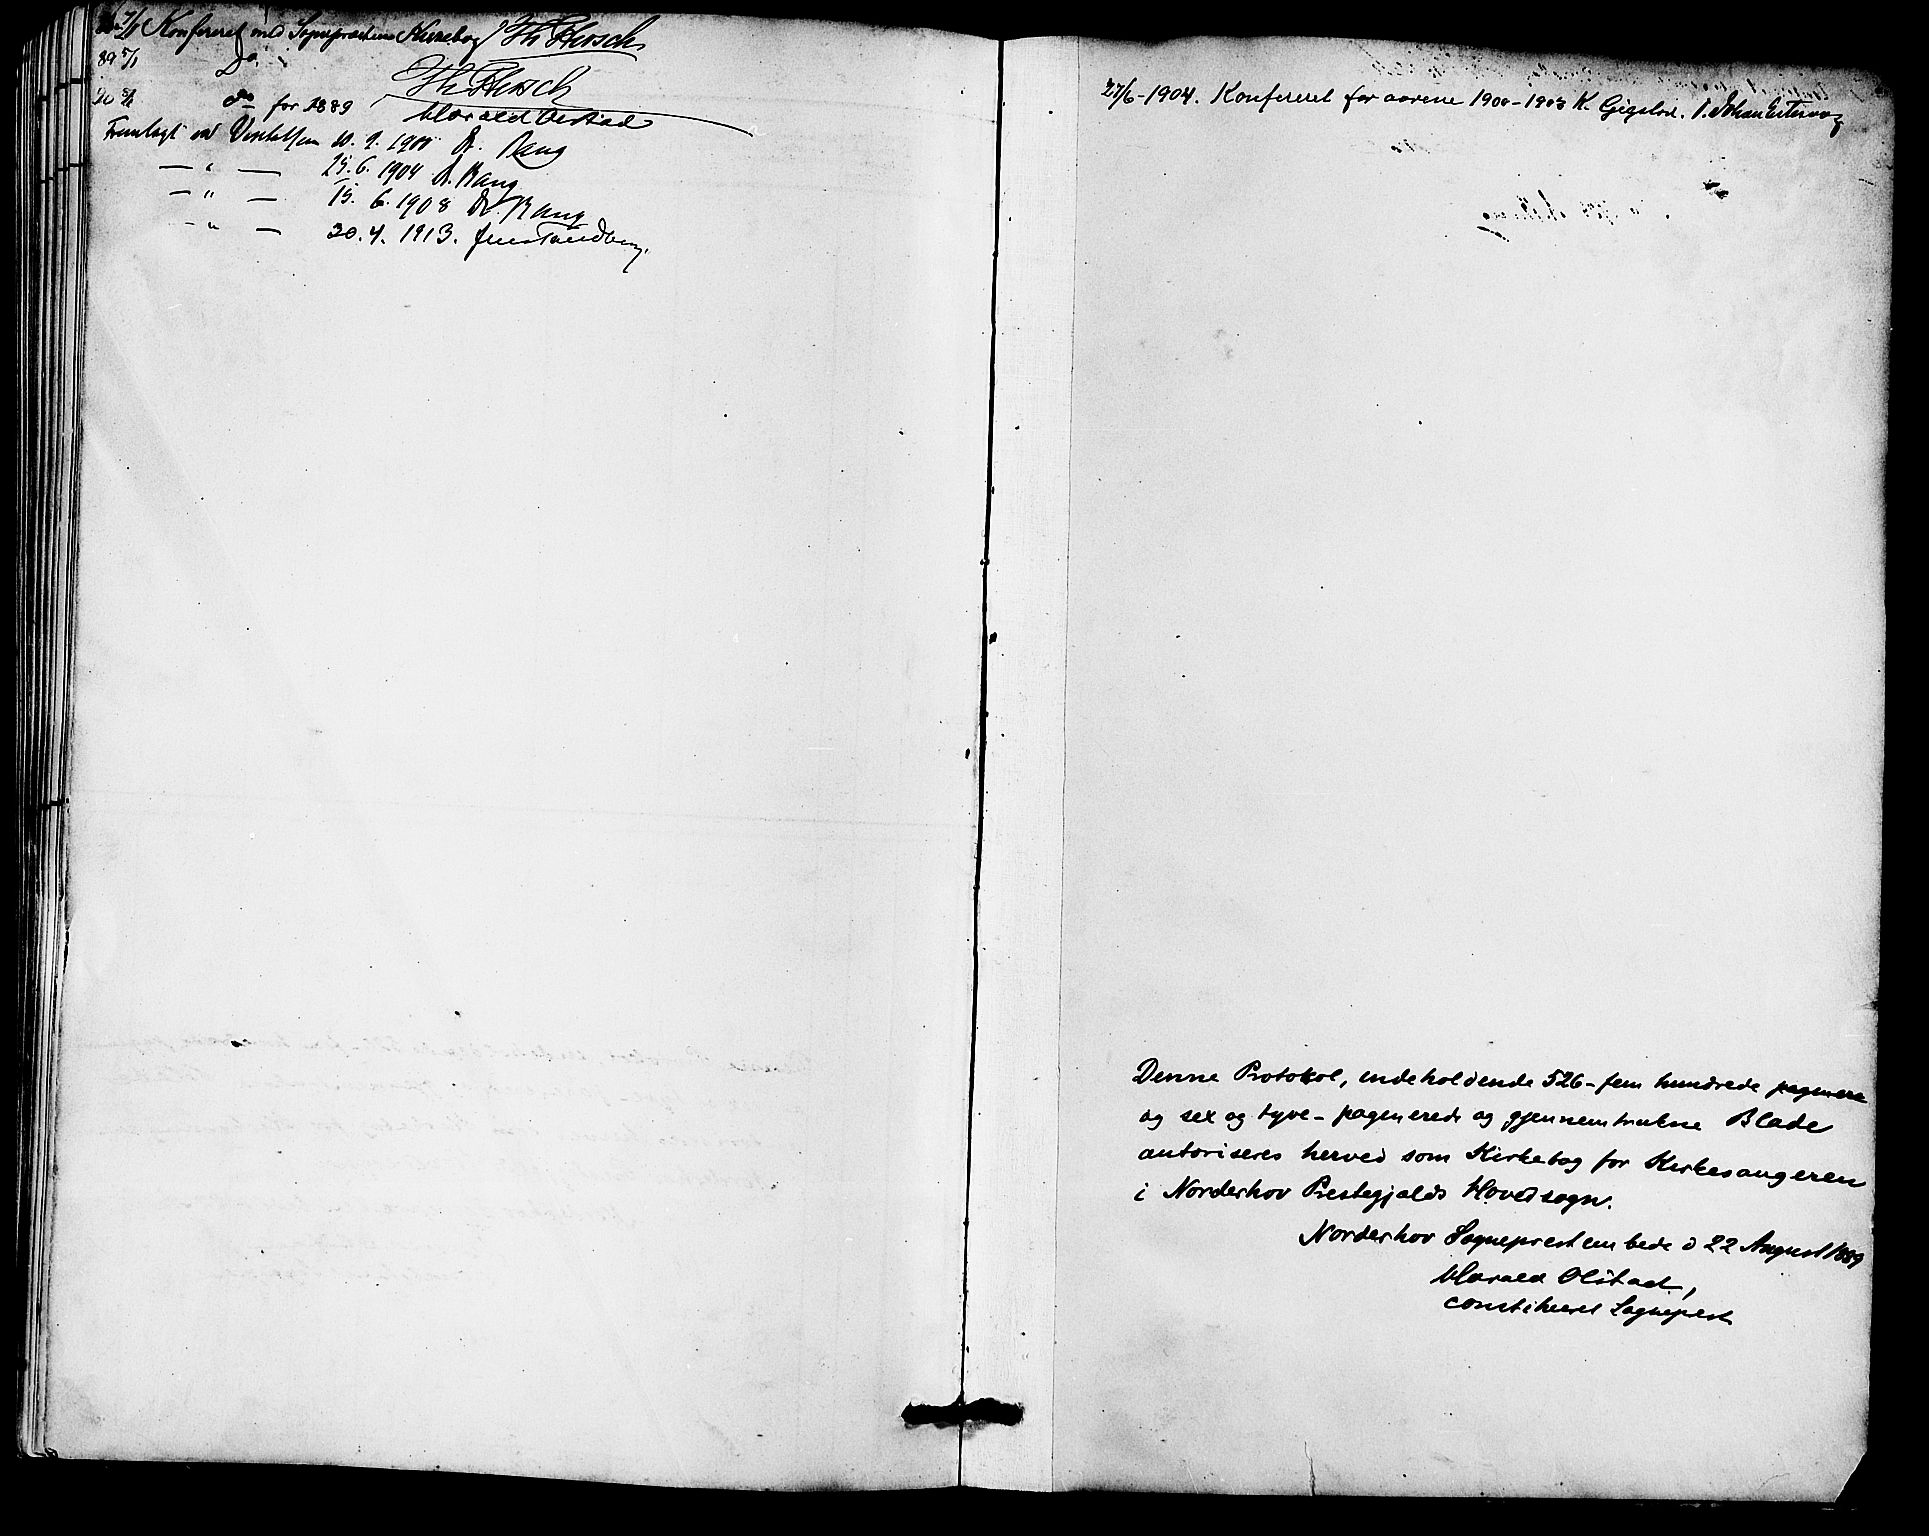 Konfereret med Sognepræstens Kirkebog Th Hirsch
89 5/1 Do. Th. Hirsch
90 do for 1889 Harald Olstad
Fremlagt ved Visitatsen 10. 9. 1900 A. Bang
— " — 25. 6. 1904 A. Bang
— " — 15. 6. 1908 A. Bang
— " — 20. 4. 1913. Jens Tandberg.
27/6-1904. Konfereret for aarene 1900-1903 K. Gigstad. / Johan
Denne Protokol, indeholdende 526 - fem hundrede
og sex og tyve - paginerede og gjennemtrukne Blade
autoriseres herved som Kirkebog for Kirkesangeren
i Norderhov Prestegjælds Hovedsogn.
Norderhov Sogneprestembede d 22 August 1889
Harald Olstad,
constitueret Sogneprest